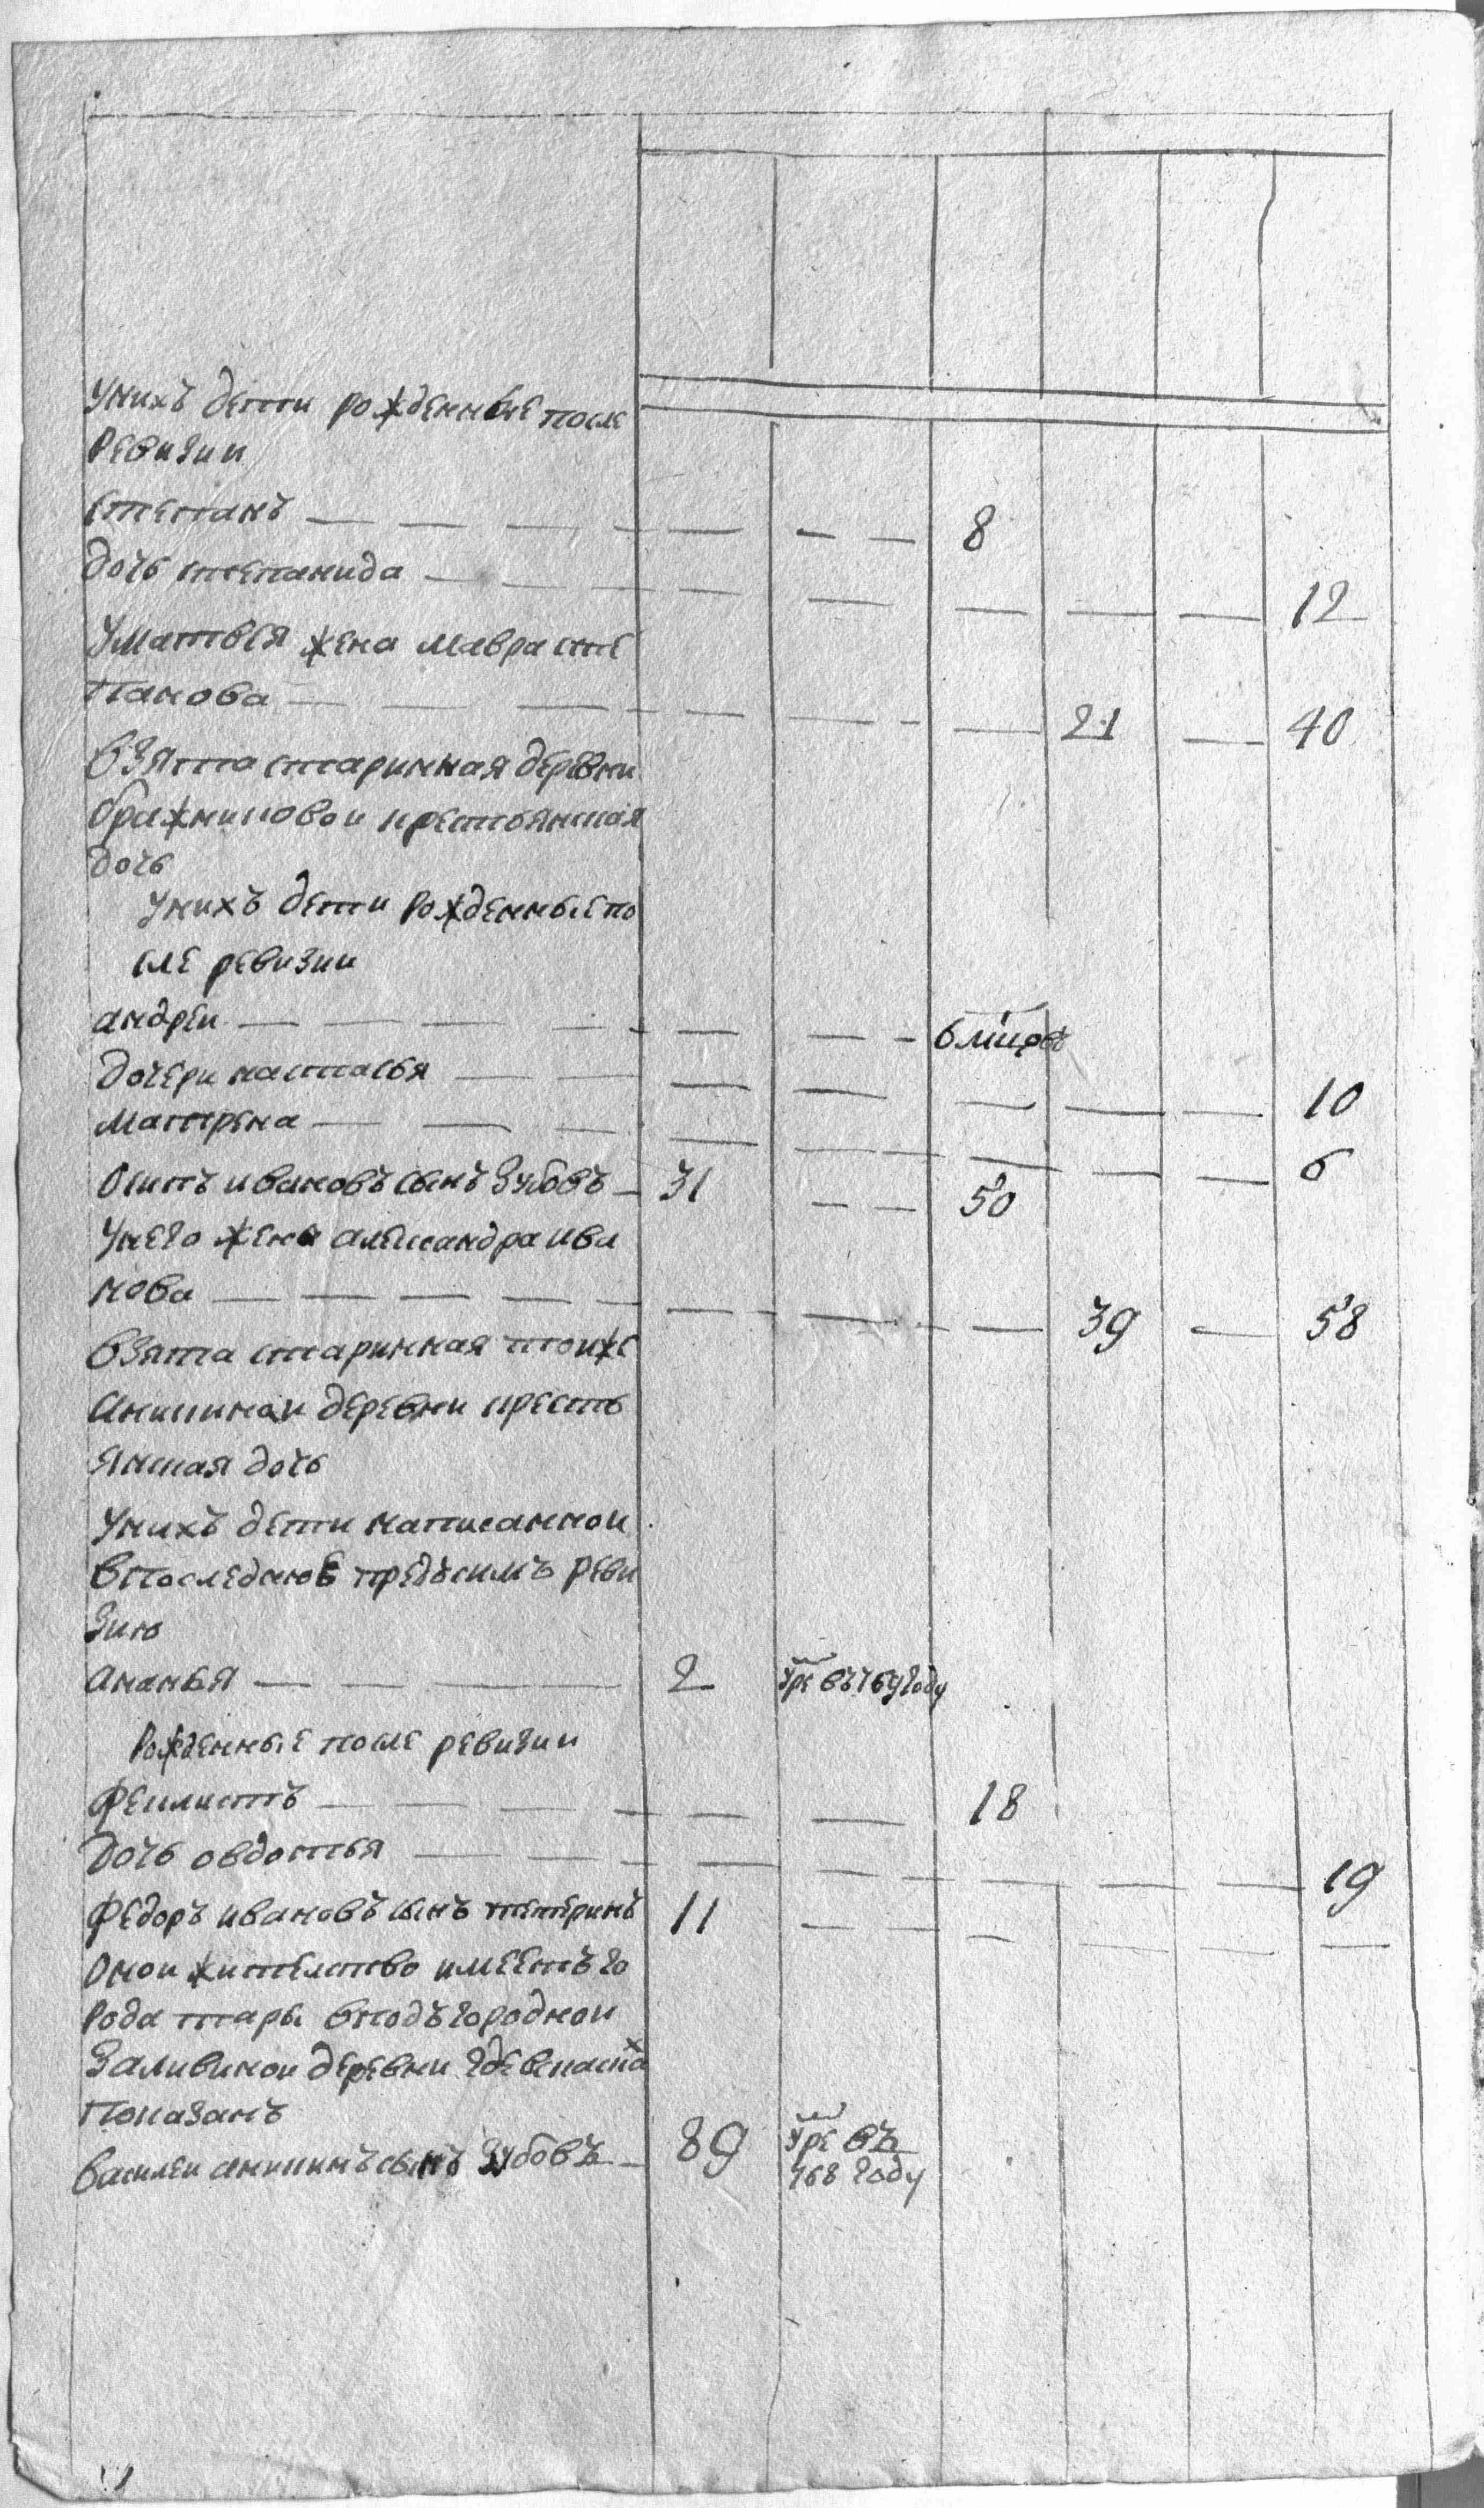 унихъ дети рожденные после
ревизии
степанъ — — — — — — 8
дочь степанида — — — — — — — — 12
уматвея жена мавра сте
панова — — — — — — — 21 — 40
взята старинная деревни
бражниковои крестьянская
дочь
унихъ дети рожденные по
сле ревизии
андреи — — — — — — — 6 мцовъ
дочери настасья — — — — — — — 10
матрена — — — — — — — 6
Осипъ ивановъ сынъ Зубовъ — 31 — — 50
унего жена александра ива
нова — — — — — — — — — 39 — 58
взята старинная тоиже
аникинои деревни кресть
янская дочь
унихъ дети написаннои
впоследнюю предъсимъ реви
зию
ананья — — — — 2 уре въ 769 году
рожденные после ревизии
феклистъ — — — — — — 18
дочь овдотья — — — — — — — — 19
федоръ ивановъ сынъ тетеринъ 11 — — — — — —
Онои жителство имеетъ го
рода тары вподъгороднои
Заливинои деревни где всказка
показанъ
василеи аникинъ сынъ Зубовъ — 89 уре въ
768 году